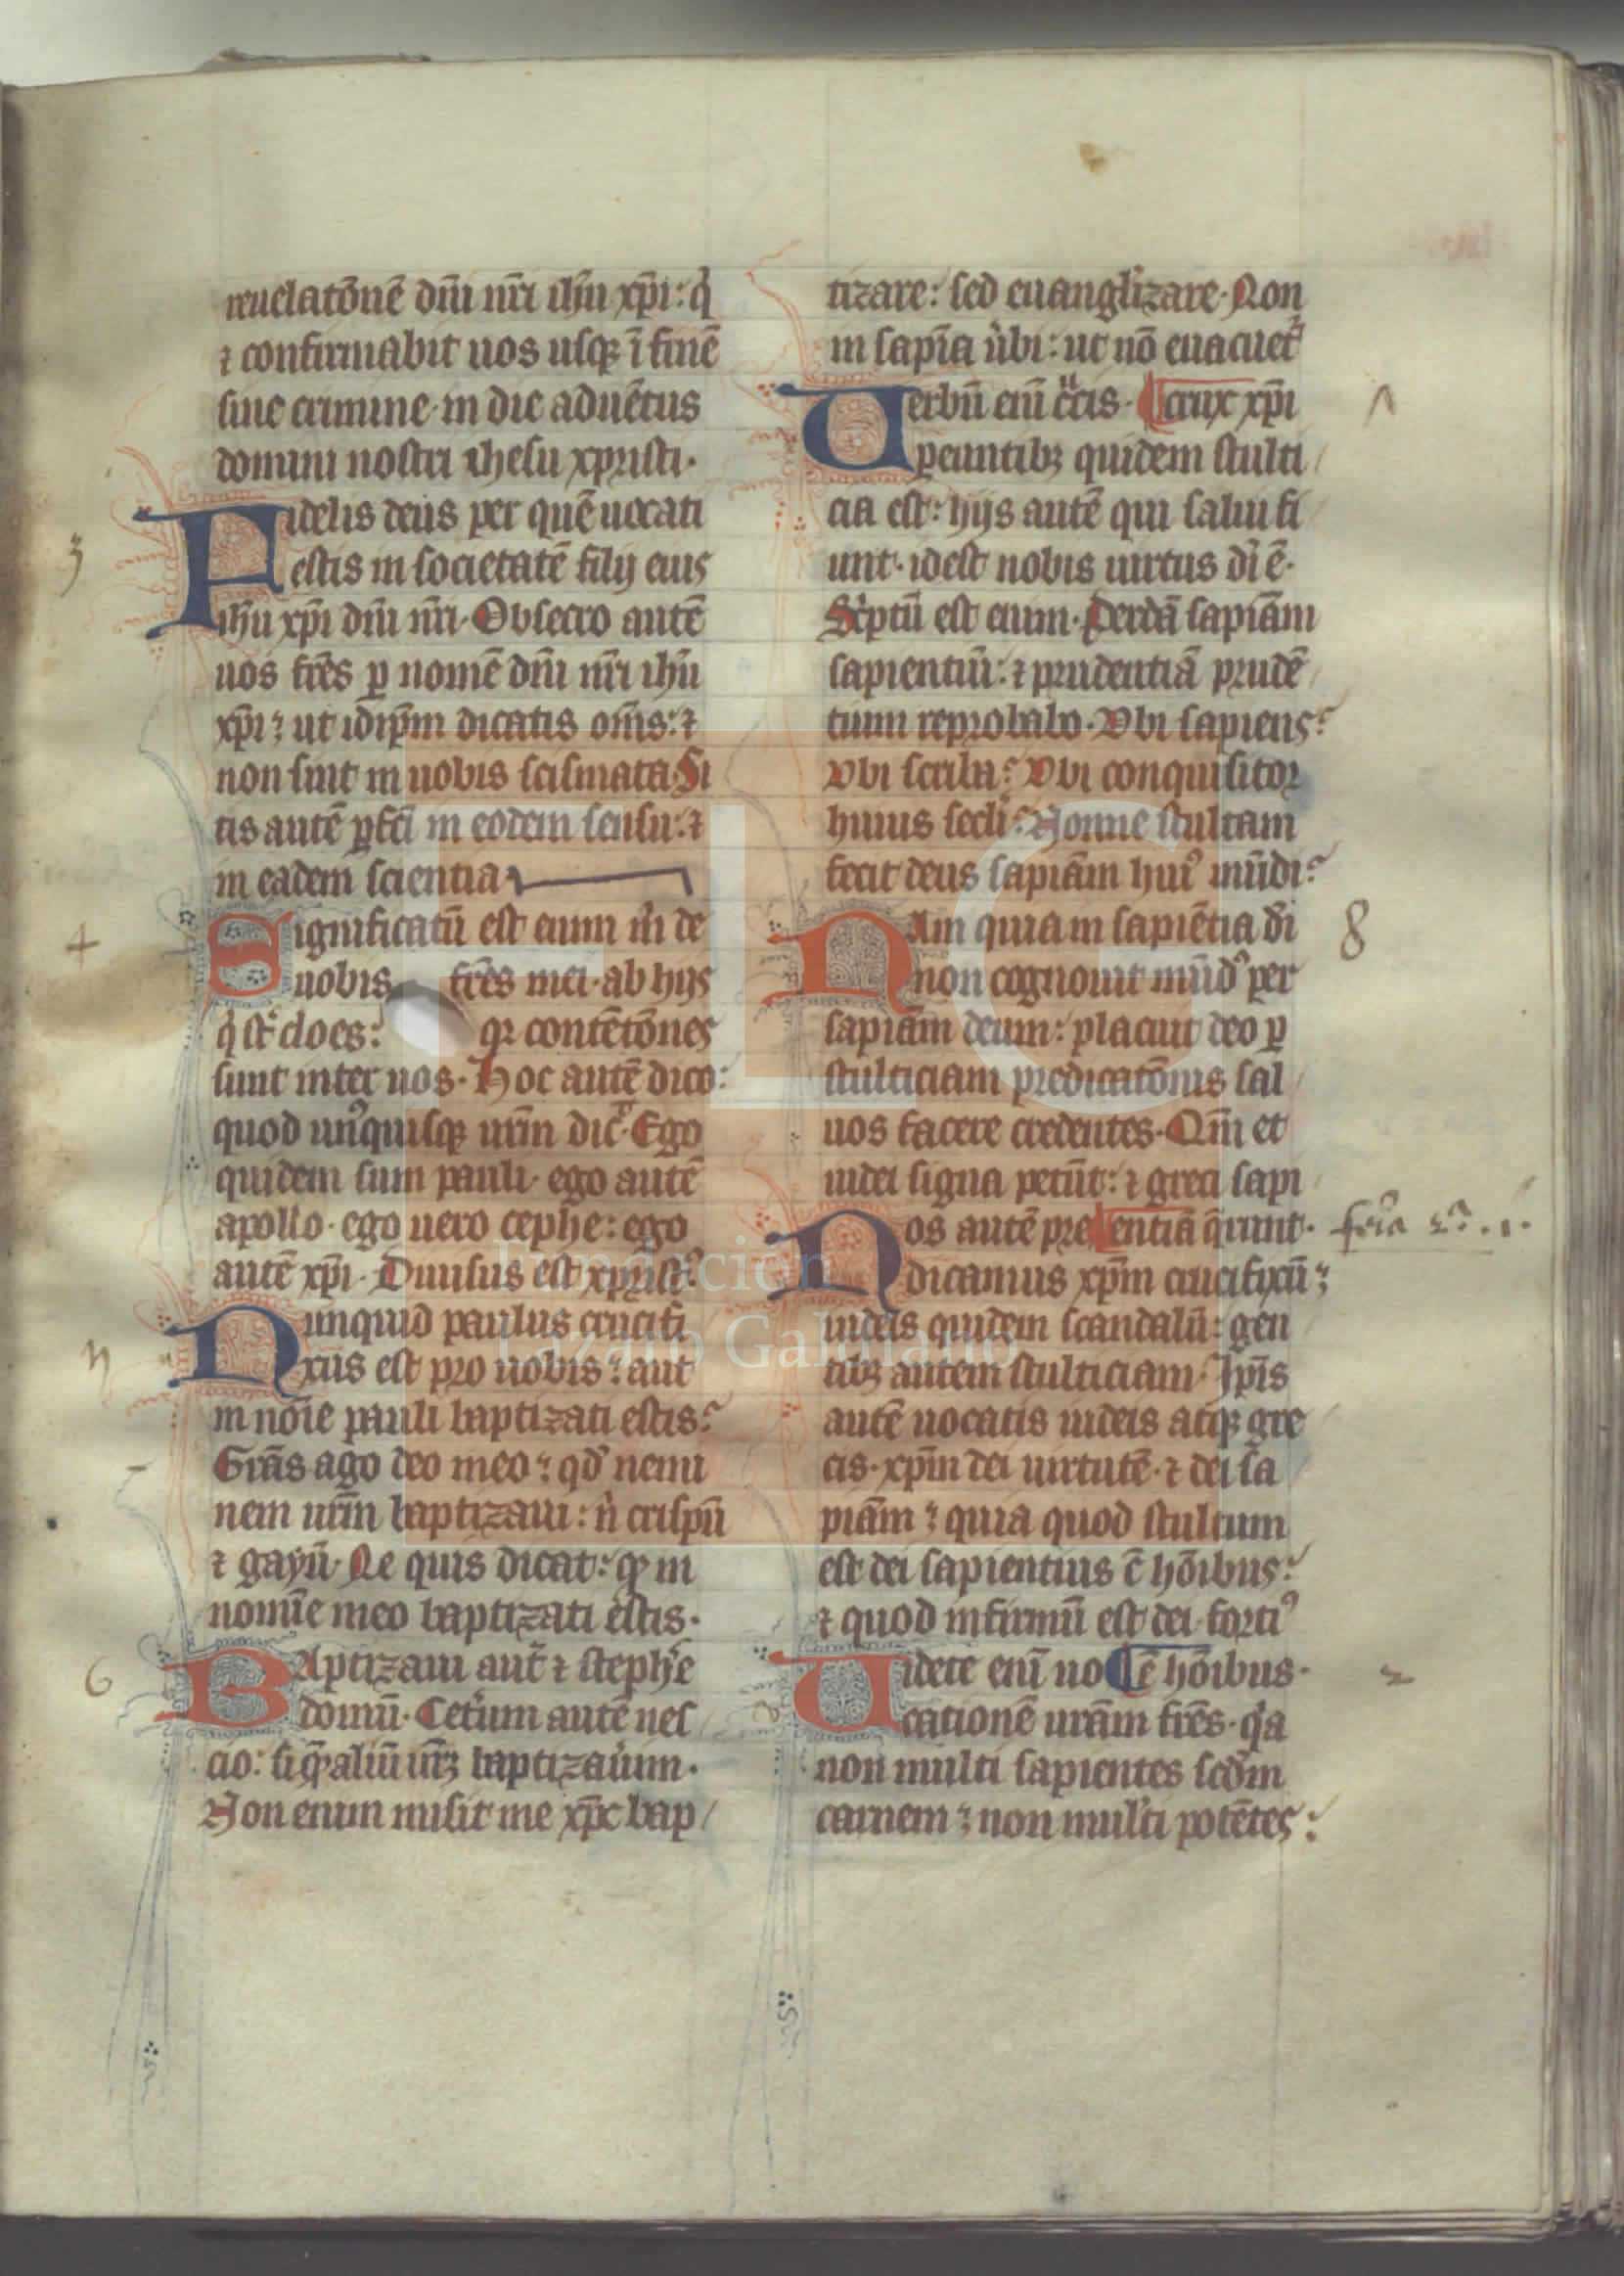 reuelatōnē dm̄i nr̄i ihū xp̄i: q̇
⁊ confirmabit uos usqꝫ ī finē
sine crimine· in die aduētus
domini nostri ihesu xpristi·
3
Fidelis deus per quē uocati
estis in societatē filij eius
ihū xp̄i dm̄i nr̄i· Obsecro autē
uos fr̄es ꝑ nomē dm̄i nr̄i ihū
xp̄i: ut idip̄m dicatis om̄s: ⁊
non sint in uobis scismata· Si
tis autē ꝑfc̄i in eodem sensu: ⁊
in eadem scientia
4
Significatū est enim m̄ de
uobis fr̄es mei· ab hijs
q̇ st̄ cloes: qꝛ contētōnes
sunt inter uos· Hoc autē dico:
quod unꝰquisqꝫ ur̄m dic̄· Ego
quidem sum pauli· ego autē
apollo· ego uero cephe: ego
autē xp̄i· Diuisus est xpristꝰ?
Nunquid paulus crucifi
xus est pro uobis: aut
in nōie pauli baptizati estis?
Grās ago deo meo: qd̓ nemi
nem ur̄m baptizaui: n̓ crispū
⁊ gayū· Ne quis dicat: qꝫ in
nomīe meo baptizati estis·
6
Baptizaui aut̄ ⁊ stephē
domū· Cet̄um autē nes
cio: si q̄ aliū ur̄ꝫ baptizau̓im·
Non enim misit me xp̄c bap/
tizare: sed euangl̓izare· Non
in sapīa u̓bi: ut nō euacuet᷑
Verbū enī c̓cis· crux xp̄i
ꝑeuntibꝫ quidem stulti/
cia est: hijs autē qui salui fi
unt· idest nobis uirtus dī ē·
Sc̓ptū est enim· Perdā sapiām
sapientiū: ⁊ prudentiā prudē
tium reprobabo· Vbi sapiens?
Vbi scriba? Vbi conquisitor
huius secl̓i? Nonne stultam
fecit deus sapiām huiꝰ mūdi?
8
Nam quia in sapiētia dī
non cognouit mūdꝰ per
sapiām deum: placuit deo ꝑ
stulticiam predicatōnis sal/
uos facere credentes· Qm̄ et
iudei signa petūt: ⁊ greci sapi
Nos autē pre entiā q̄runt·
dicamus xp̄m crucifixū:
iudeis quidem scandalū: gen
tibꝫ autem stulticiam· Ip̄is
autē uocatis iudeis atqꝫ gre
cis· xp̄m dei uirtutē· ⁊ dei sa
piām: quia quod stultum
est dei sapientius ē hōibus:
⁊ quod infirmū est dei· fortiꝰ
Videte enī uo ē hōibus·
cationē urām fr̄es· q̓a
non multi sapientes scd̓m
carnem: non multi potētes:
Fundación
Lázaro Galdiano
FLG